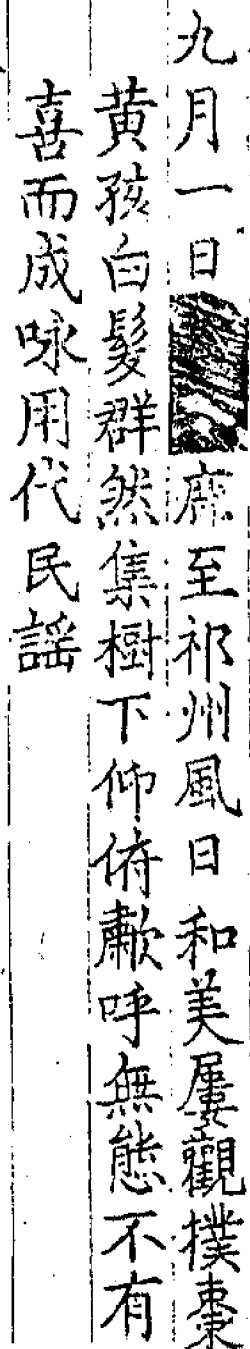 九月一日鹿至祁州風日和美屢觀撲棗
黄孩白髮群然集樹下仰俯歡呼無態不有
喜而成咏用代民謠